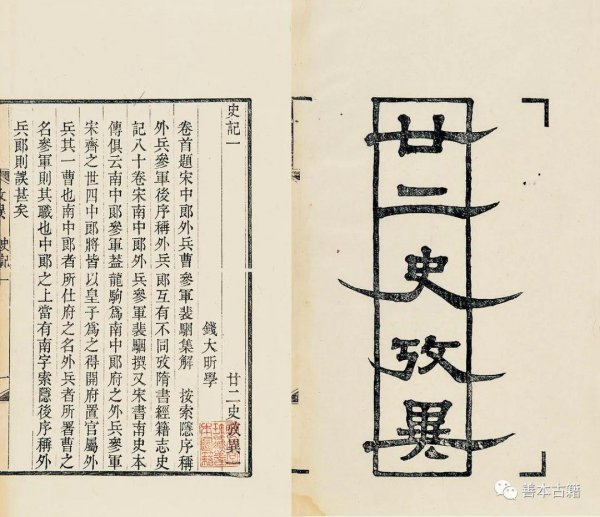 廿二史攷異
史記一 廿二史攷異一
錢大昕學
卷首題宋中郎外兵曹參軍裴駰集解 按索隱序稱
外兵參軍後序稱外兵郎互有不同攷隋書經籍志史
記八十卷宋南中郎外兵參軍裴駰撰又宋書南史本
傳俱云南中郎參軍葢龍駒為南中郎府之外兵參軍
宋齊之世四中郎將皆以皇子為之得開府置官屬外
兵其一曹也南中郎者所仕府之名外兵者所署曹之
名參軍則其職也中郎之上當有南字索隱後序稱外
兵郎則誤甚矣
善本古籍